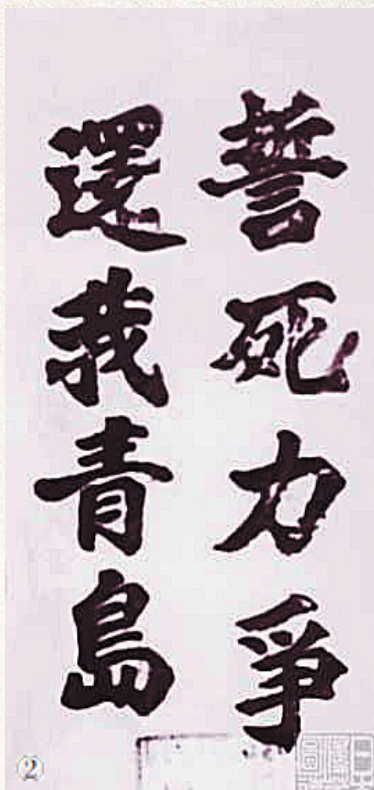 誓死力爭
還我青島
②